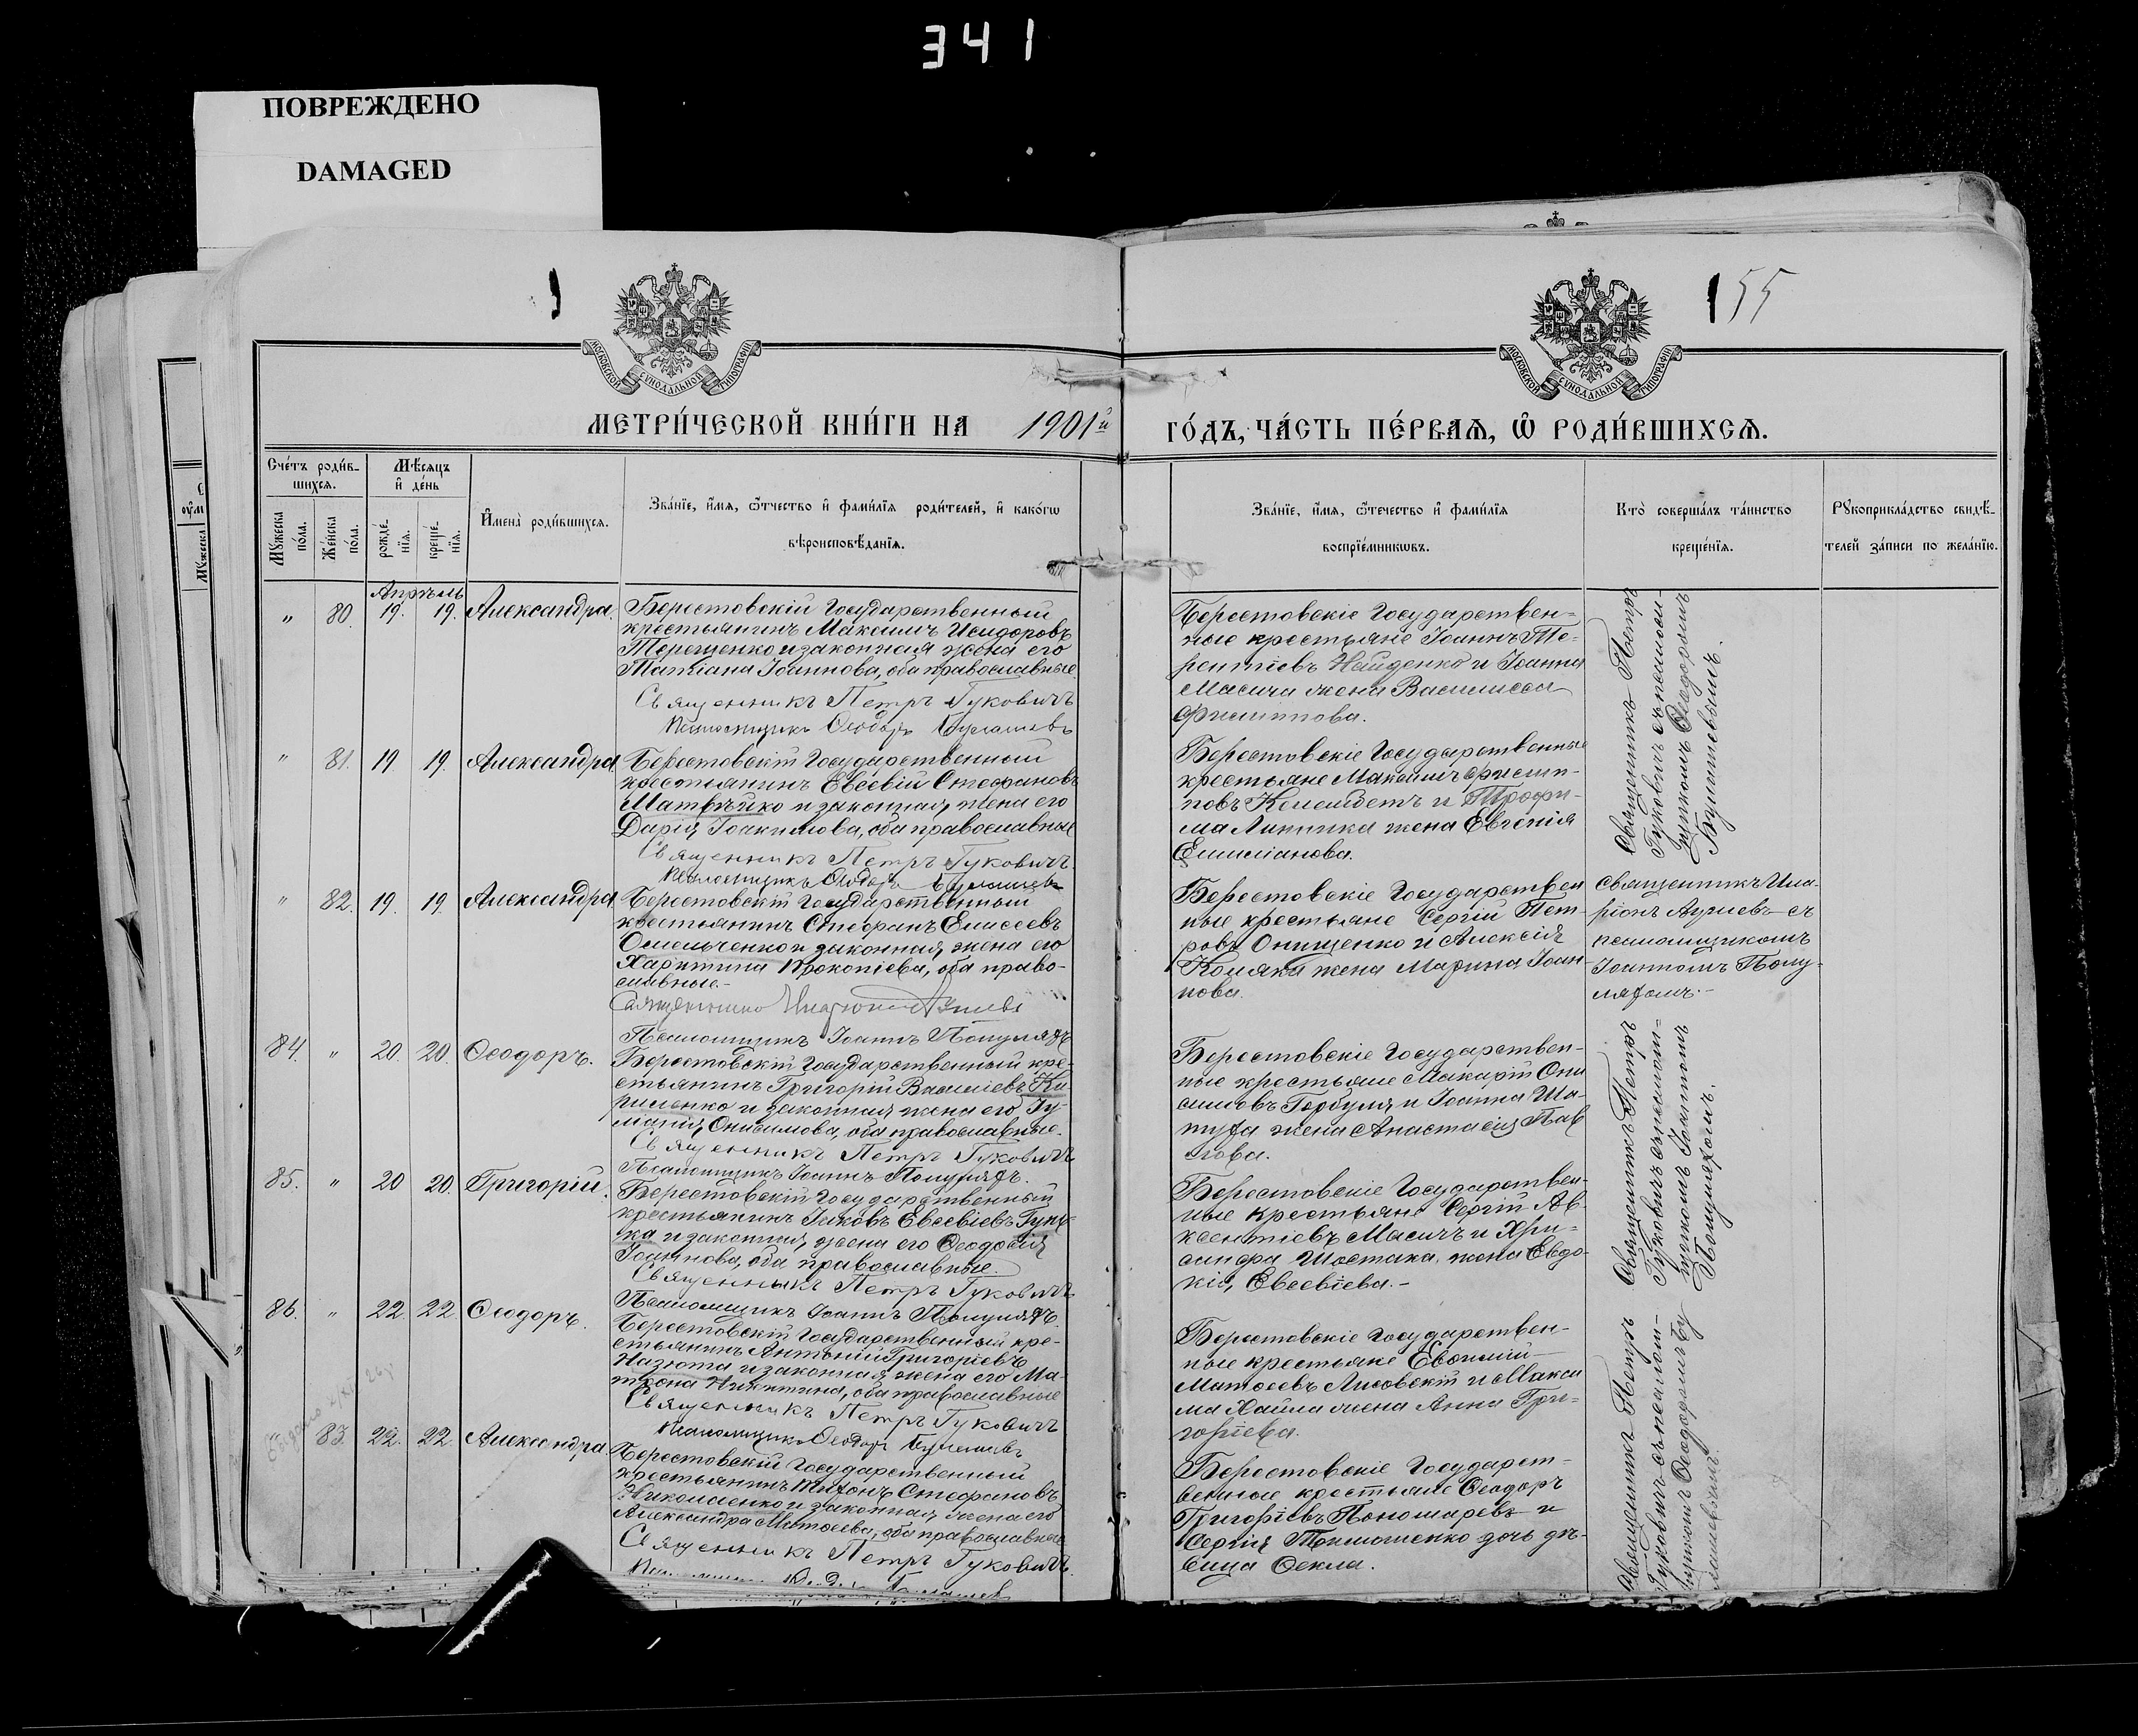 341
ПОВРЕЖДЕНО
DAMAGED
155
МОСКОВСКОЙ СѴНОДАЛЬНОЙ ТИПОГРАФІИ
МОСКОВСКОЙ СѴНОДАЛЬНОЙ ТИПОГРАФІИ
МЕТРИ́ЧЕСКОЙ КНИ́ГИ НА 1901й
ГО́ДЪ, ЧА́СТЬ ПЕ́РВАѦ, Ѡ҆ РОДИ́ВШИХСѦ.
Сче́тъ роди́в-
шихсѧ.
Мꙋ́жеска по́ла.
Же́нска по́ла.
Мѣ́сѧцъ
и҆ де́нь
рожде́-
нїѧ.
креще́-
нїѧ.
И҆мена̀ роди́вшихсѧ.
Зва́нїе, и҆́мѧ, ѻ҆́тчество и҆ фами́лїѧ роди́телей, и҆ како́гѡ
вѣроисповѣ́данїѧ.
Зва́нїе, и҆́мѧ, ѻ҆те́чество и҆ фами́лїѧ
воспрїе́мникѡвъ.
Кто̀ соверша́лъ та́инство
креще́нїѧ.
Рꙋкоприкла́дство свидѣ́-
телей за́писи по жела́нїю.
Апрѣль
" 80. 19. 19. Александра.
Берестовскій Государственный
крестьянинъ Максимъ Исидоровъ
Терещенко и законная жена его
Татіана Іоаннова, оба православные
Священникъ Петръ Гуковичъ
Псаломщикъ Ѳеодоръ
Берестовскіе Государствен-
ные крестьяне Іоаннъ Те-
рентіевъ Найденко и Іоанна
Масича жена Василисса
Филиппова.
Священникъ Петръ
Гуковичъ съ псалом-
щикомъ Ѳеодоромъ
" 81. 19. 19. Александра
Берестовскій Государственный
крестьянинъ Евсевій Стефановъ
Матвѣйко и законная жена его
Дарія Іоакимова, оба православные
Священникъ Петръ Гуковичъ
Псаломщикъ Ѳеодоръ
Берестовскіе Государственные
крестьяне Максимъ Филип-
повъ и Трофи-
ма Липника жена Евгенія
Емиліанова.
" 82. 19. 19. Александра
Берестовскій Государственный
крестьянинъ Стефанъ Елисеевъ
Омельченко и законная жена его
Харитина Прокопіева, оба право-
славные.-
Псаломщикъ Іоаннъ Полуляхъ
Берестовскіе Государствен
ные крестьяне Сергій Пет-
ровъ Онищенко и Алексія
Коляки жена Марина Іоан-
нова.
Священникъ Ила-
ріонъ съ
псаломщикомъ
Іоанномъ Полу-
ляхомъ.-
84. " 20. 20. Ѳеодоръ.
Берестовскій Государственный кре-
стьянинъ Григорій Василіевъ Ки-
риленко и законная жена его Іу-
ліанія Онисимова, оба православные.
Священникъ Петръ Гуковичъ
Псаломщикъ Іоаннъ Полуляхъ.
Берестовскіе Государствен-
ные крестьяне Макарій Они
симовъ Горбуля и Іоанна Ша-
пура жена Анастасія Пав
лова.
Священникъ Петръ
Гуковичъ съ псалом-
щикомъ Іоанномъ
Полуляхомъ.
85. " 20 20. Григорій.
Берестовскій Государственный
крестьянинъ Іаковъ Евсевіевъ
и законная жена его Ѳеодосія
Іоаннова, оба православные.
Священникъ Петръ Гуковичъ
Псаломщикъ Іоаннъ Полуляхъ.
Берестовскіе Государствен-
ные крестьяне Сергій Ав-
ксентіевъ Масичъ и Хри-
санфа Шостака жена Евдо-
кія Евсевіева.-
86. " 22. 22 Ѳеодоръ.
Берестовскій Государственный кре-
стьянинъ Антоній Григоріевъ
Назюта и законная жена его Ма-
трона Никитина, оба православные
Священникъ Петръ Гуковичъ
Псаломщикъ Ѳеодоръ
Берестовскіе Государствен-
ные крестьяне Евѳимій
Матѳеевъ Лисовскій и Макси
ма Хайла жена Анна Гри-
горіева.
Священникъ Петръ
Гуковичъ съ псалом-
щикомъ Ѳеодоромъ
83. 22. 22 Александра.
Берестовскій Государственный
крестьянинъ Тихонъ Стефановъ
Николаенко и законная жена его
Александра Матѳеева, оба православные
Священникъ Петръ Гуковичъ.
Берестовскіе Государст-
венные крестьяне Ѳеодоръ
Григоріевъ Пономаревъ и
Сергія Тимошенко дочь дѣ-
вица Ѳекла.